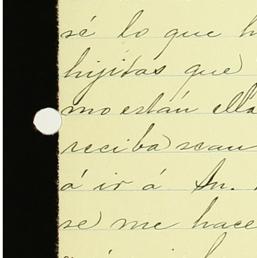 sé lo que h
hijitas que
mo están ella
reciba se
á ir á Sn.
se me hace